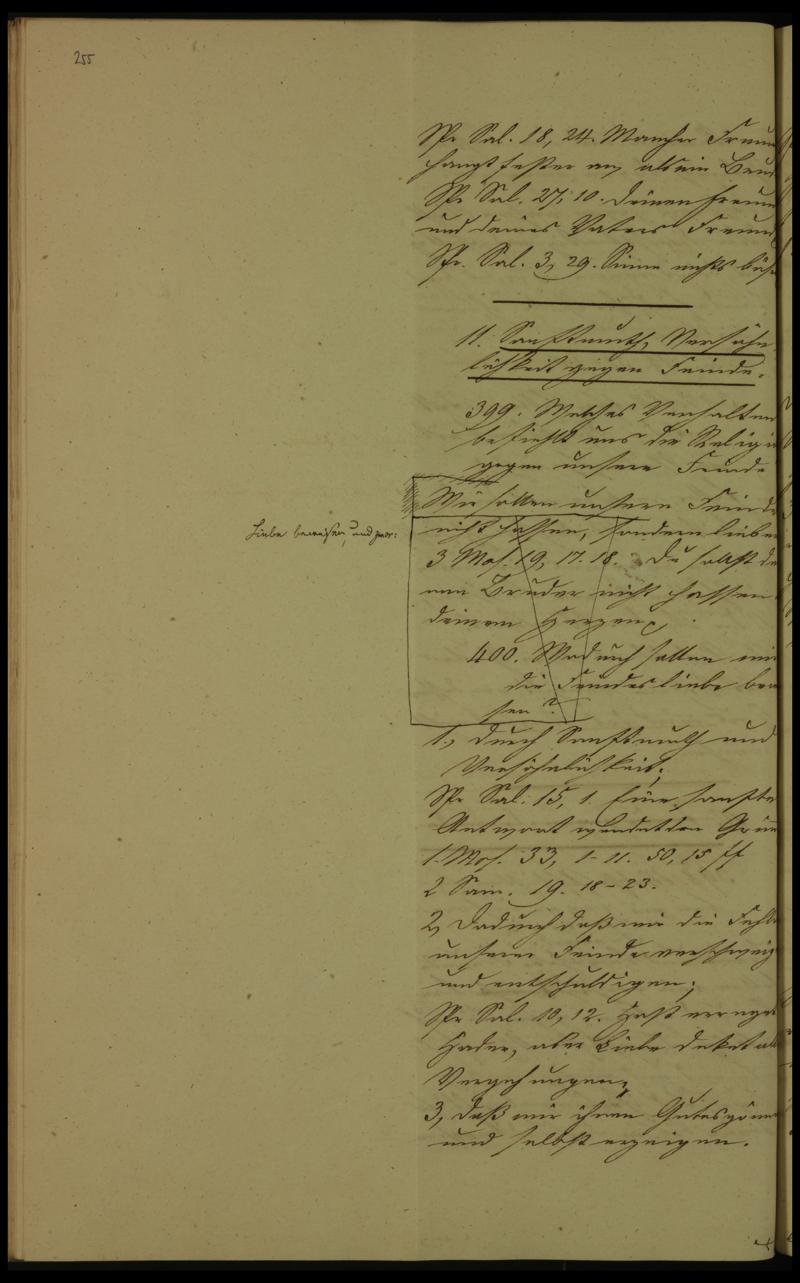 255
Spr Sal. 18, 24. Mancher Freun
hängt fester an als ein Bru
Spr Sal. 27, 10. Deinen Freun
und deines Vaters Freund
Spr. Sal. 3, 29. Sinne nichts bös
11. Sanftmuth, Versöhn
lichkeit gegen Feinde.
399. Welches Verhalten
befiehlt uns die Religio
gegen unsere Feinde
Wir sollen unsern Feinde
Liebe beweisen, und zwar:
nicht hassen, sondern lieben
3 Mos. 19, 17. 18. Du sollst de
nen Bruder nicht hassen
deinem Herzen
400. Wodurch sollen wir
die Feindesliebe bewe
sen?
1., Durch Sanftmuth und
Versöhnlichkeit;
Spr Sal: 15, 1. Eine sanfte
Antwort wendet den Grim
1. Mos. 33, 1-11. 50, 15 ff
2 Sam. 19. 18-23.
2, Dadurch daß wir die Fehle
unserer Feinde verschweig
und entschuldigen;
Spr Sal. 10, 12. Haß erreget
Hader, aber Liebe deket all
Vergehungen;
3, daß wir ihnen Gutes gönne
und selbst erzeigen.